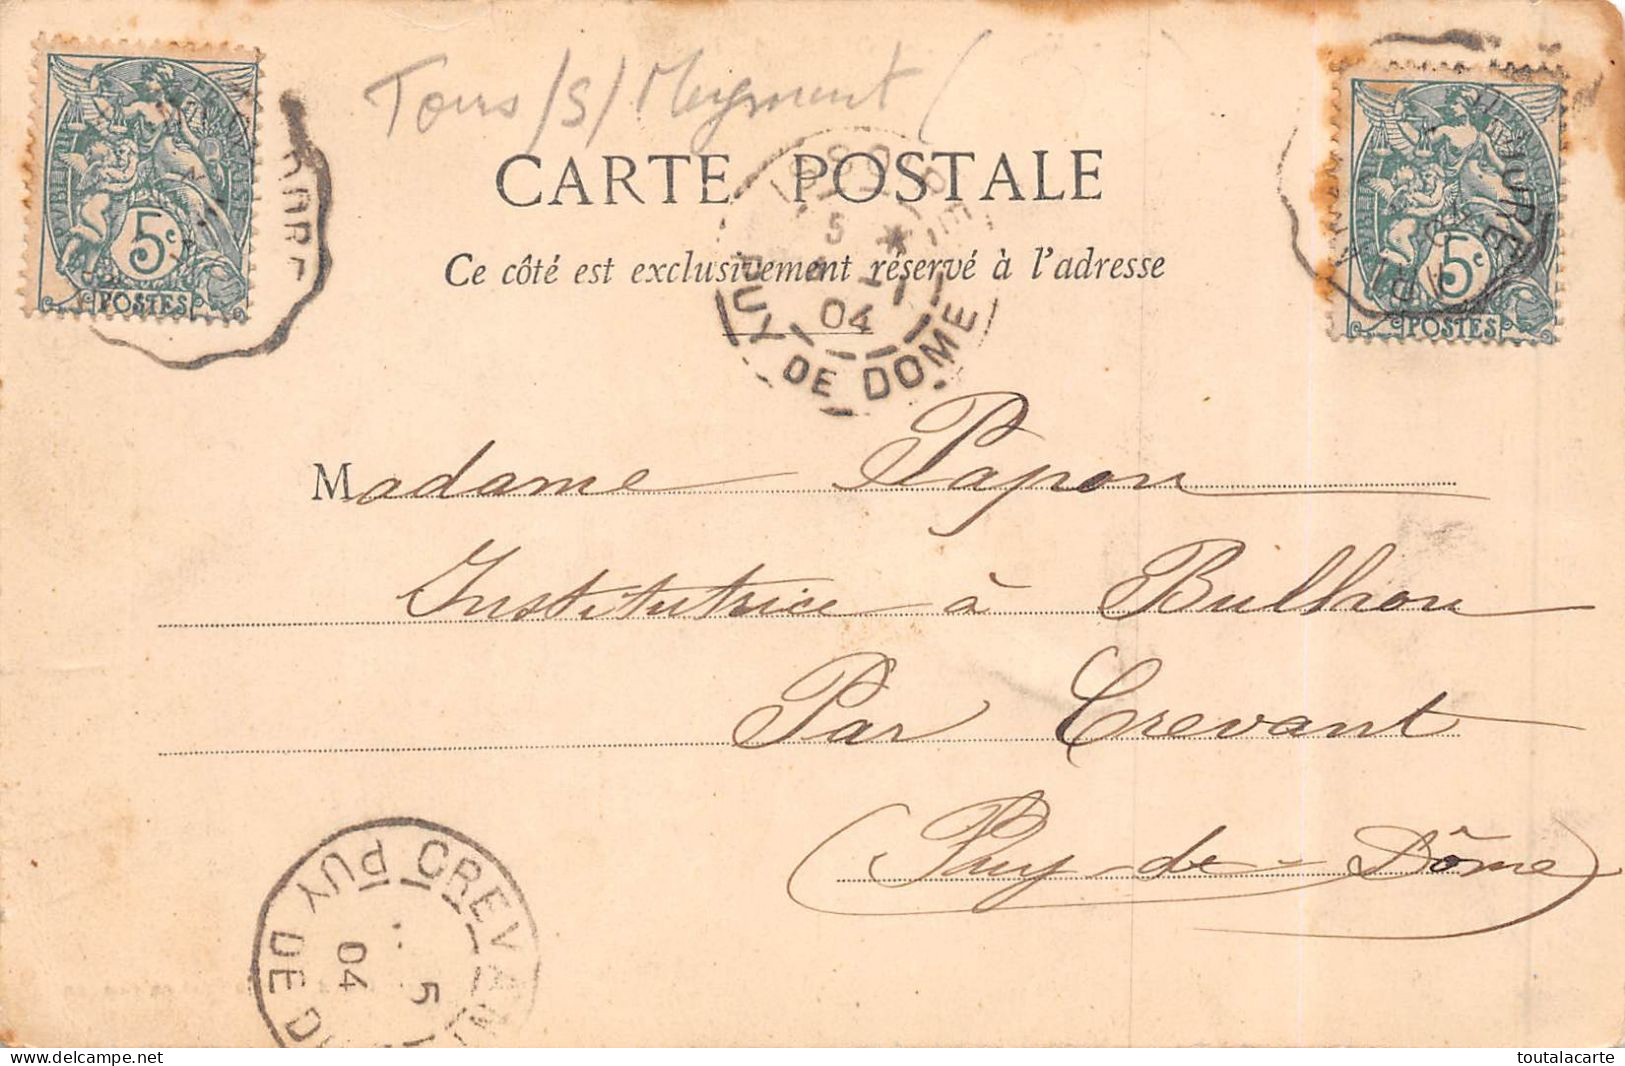 Tours/s/Meymont (
CARTE POSTALE
Ce côté est exclusivement réservé à l'adresse
5
04
PUY DE DOME
5c
POSTES
5c
POSTES
Madame Papon
Institutrice à Bulhon
Par Crevant
(Puy-de-Dôme)
CREVANT
PUY DE DO
5
04
delcampe.net
toutalacarte